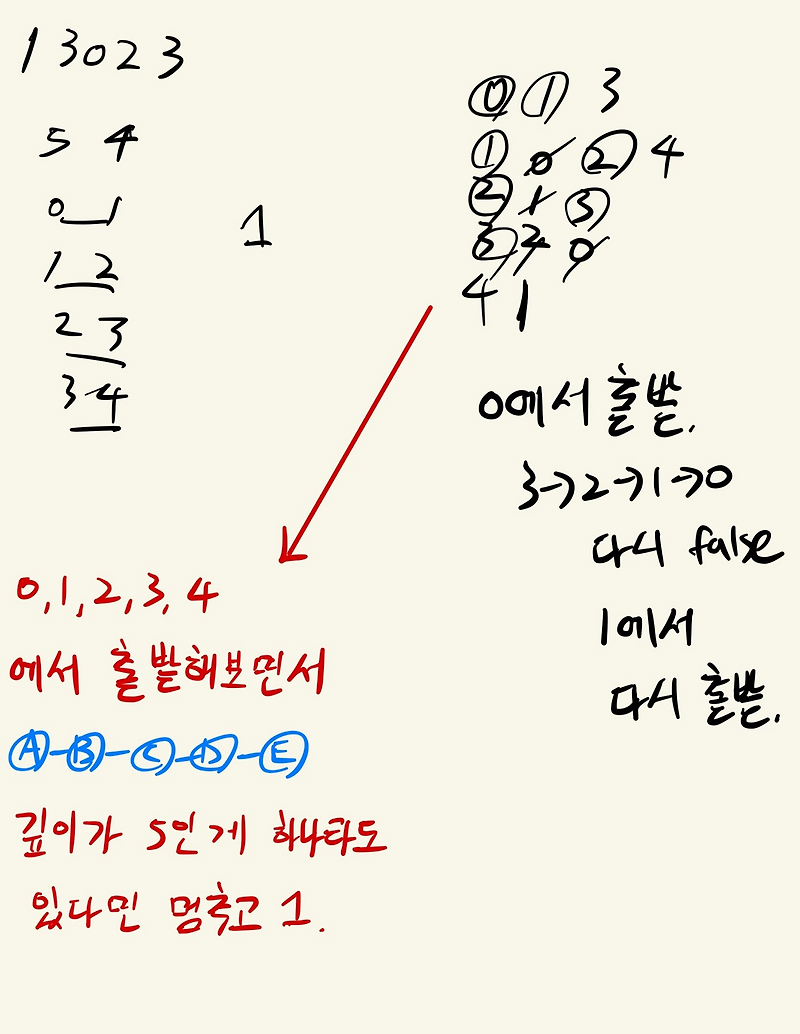 13023
5 4
0 1
1 2
2 3
3 4
1
0 1 3
1 0 2 4
2 1 3
3 2 0
4 1
0에서 출발.
3→2→1→0
다시 false
1에서
다시 출발.
0,1,2,3,4
에서 출발해보면서
A-B-C-D-E
깊이가 5인게 하나라도
있다면 멈추고 1.